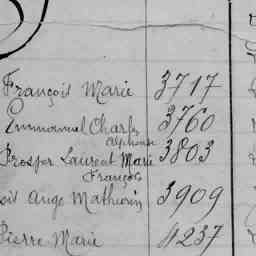 François Marie 3717
Emmanuel Charles 3760
Alphonse
Prosper Laurent Marie 3803
François
Ange Mathurin 3909
Pierre Marie 4237